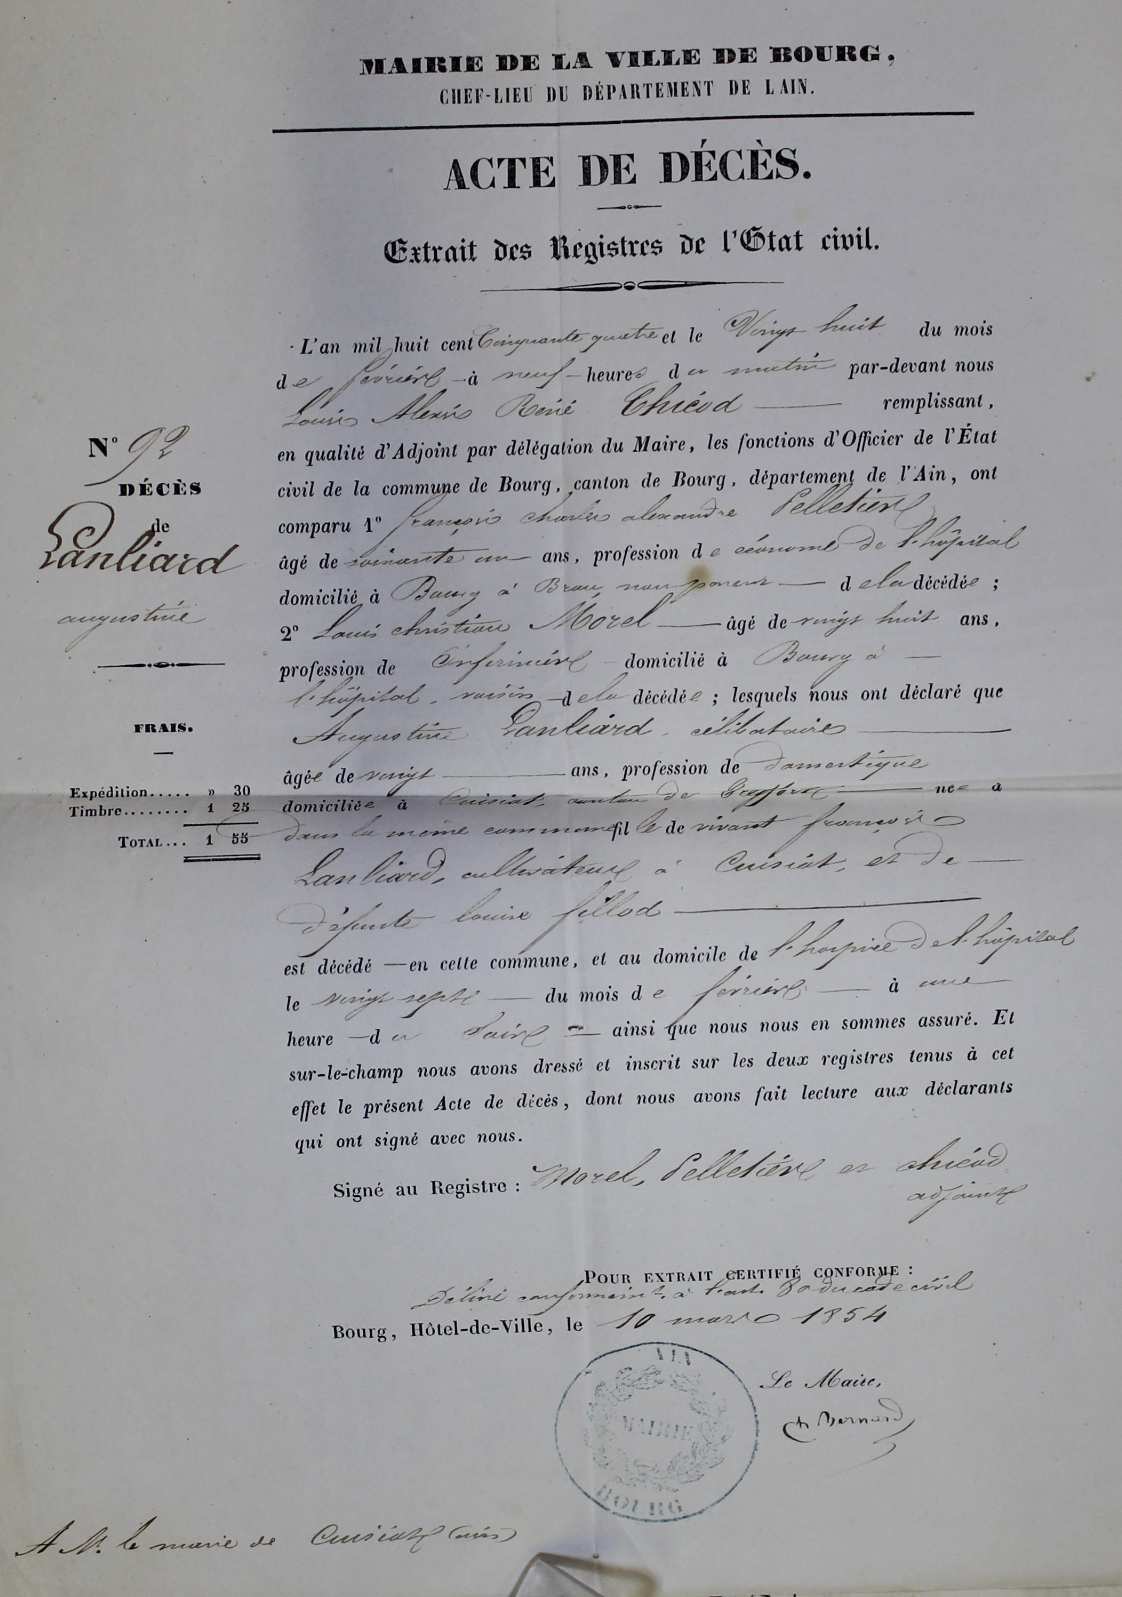 MAIRIE DE LA VILLE DE BOURG,
CHEF-LIEU DU DÉPARTEMENT DE L'AIN.
ACTE DE DÉCÈS.
Extrait des Registres de l'Etat civil.
L'an mil huit cent Cinquante quatre et le Vingt huit du mois
de février à neuf heures du matin par-devant nous
Louis Alexis René Chicod remplissant,
en qualité d'Adjoint par délégation du Maire, les fonctions d'Officier de l'État
civil de la commune de Bourg, canton de Bourg, département de l'Ain, ont
comparu 1° françois charles alexandre Pelletier
âgé de soixante un ans, profession d économe de l'hôpital
domicilié à Bourg à Brou, non parent de la décédée ;
2° Louis christian Morel âgé de vingt huit ans,
profession de Infirmier domicilié à Bourg à
l'hôpital, voisin de la décédée ; lesquels nous ont déclaré que
Augustine Lanliard, célibataire
âgée de vingt ans, profession de domestique
domiciliée à Cuisiat, canton de née à
dans la même commune fille de vivant françois
Lanliard, cultivateur à Cuisiat, et de
défunte louise fillod
est décédé en cette commune, et au domicile de l'hospice de l'hôpital
le vingt sept du mois de février à une
heure du soir ainsi que nous nous en sommes assuré. Et
sur-le-champ nous avons dressé et inscrit sur les deux registres tenus à cet
effet le présent Acte de décès, dont nous avons fait lecture aux déclarants
qui ont signé avec nous.
Signé au Registre : Morel, Pelletier et chicod
adjoint
POUR EXTRAIT CERTIFIÉ CONFORME :
Délivré conformémt à l'art. 80 du code civil
Bourg, Hôtel-de-Ville, le 10 mars 1854
Le Maire,
Bernard
AIN
MAIRIE
BOURG
N° 92
DÉCÈS
de
Lanliard
augustine
FRAIS.
Expédition..... » 30
Timbre........ 1 25
TOTAL... 1 55
A Mr le maire de Cuisiat (ain)